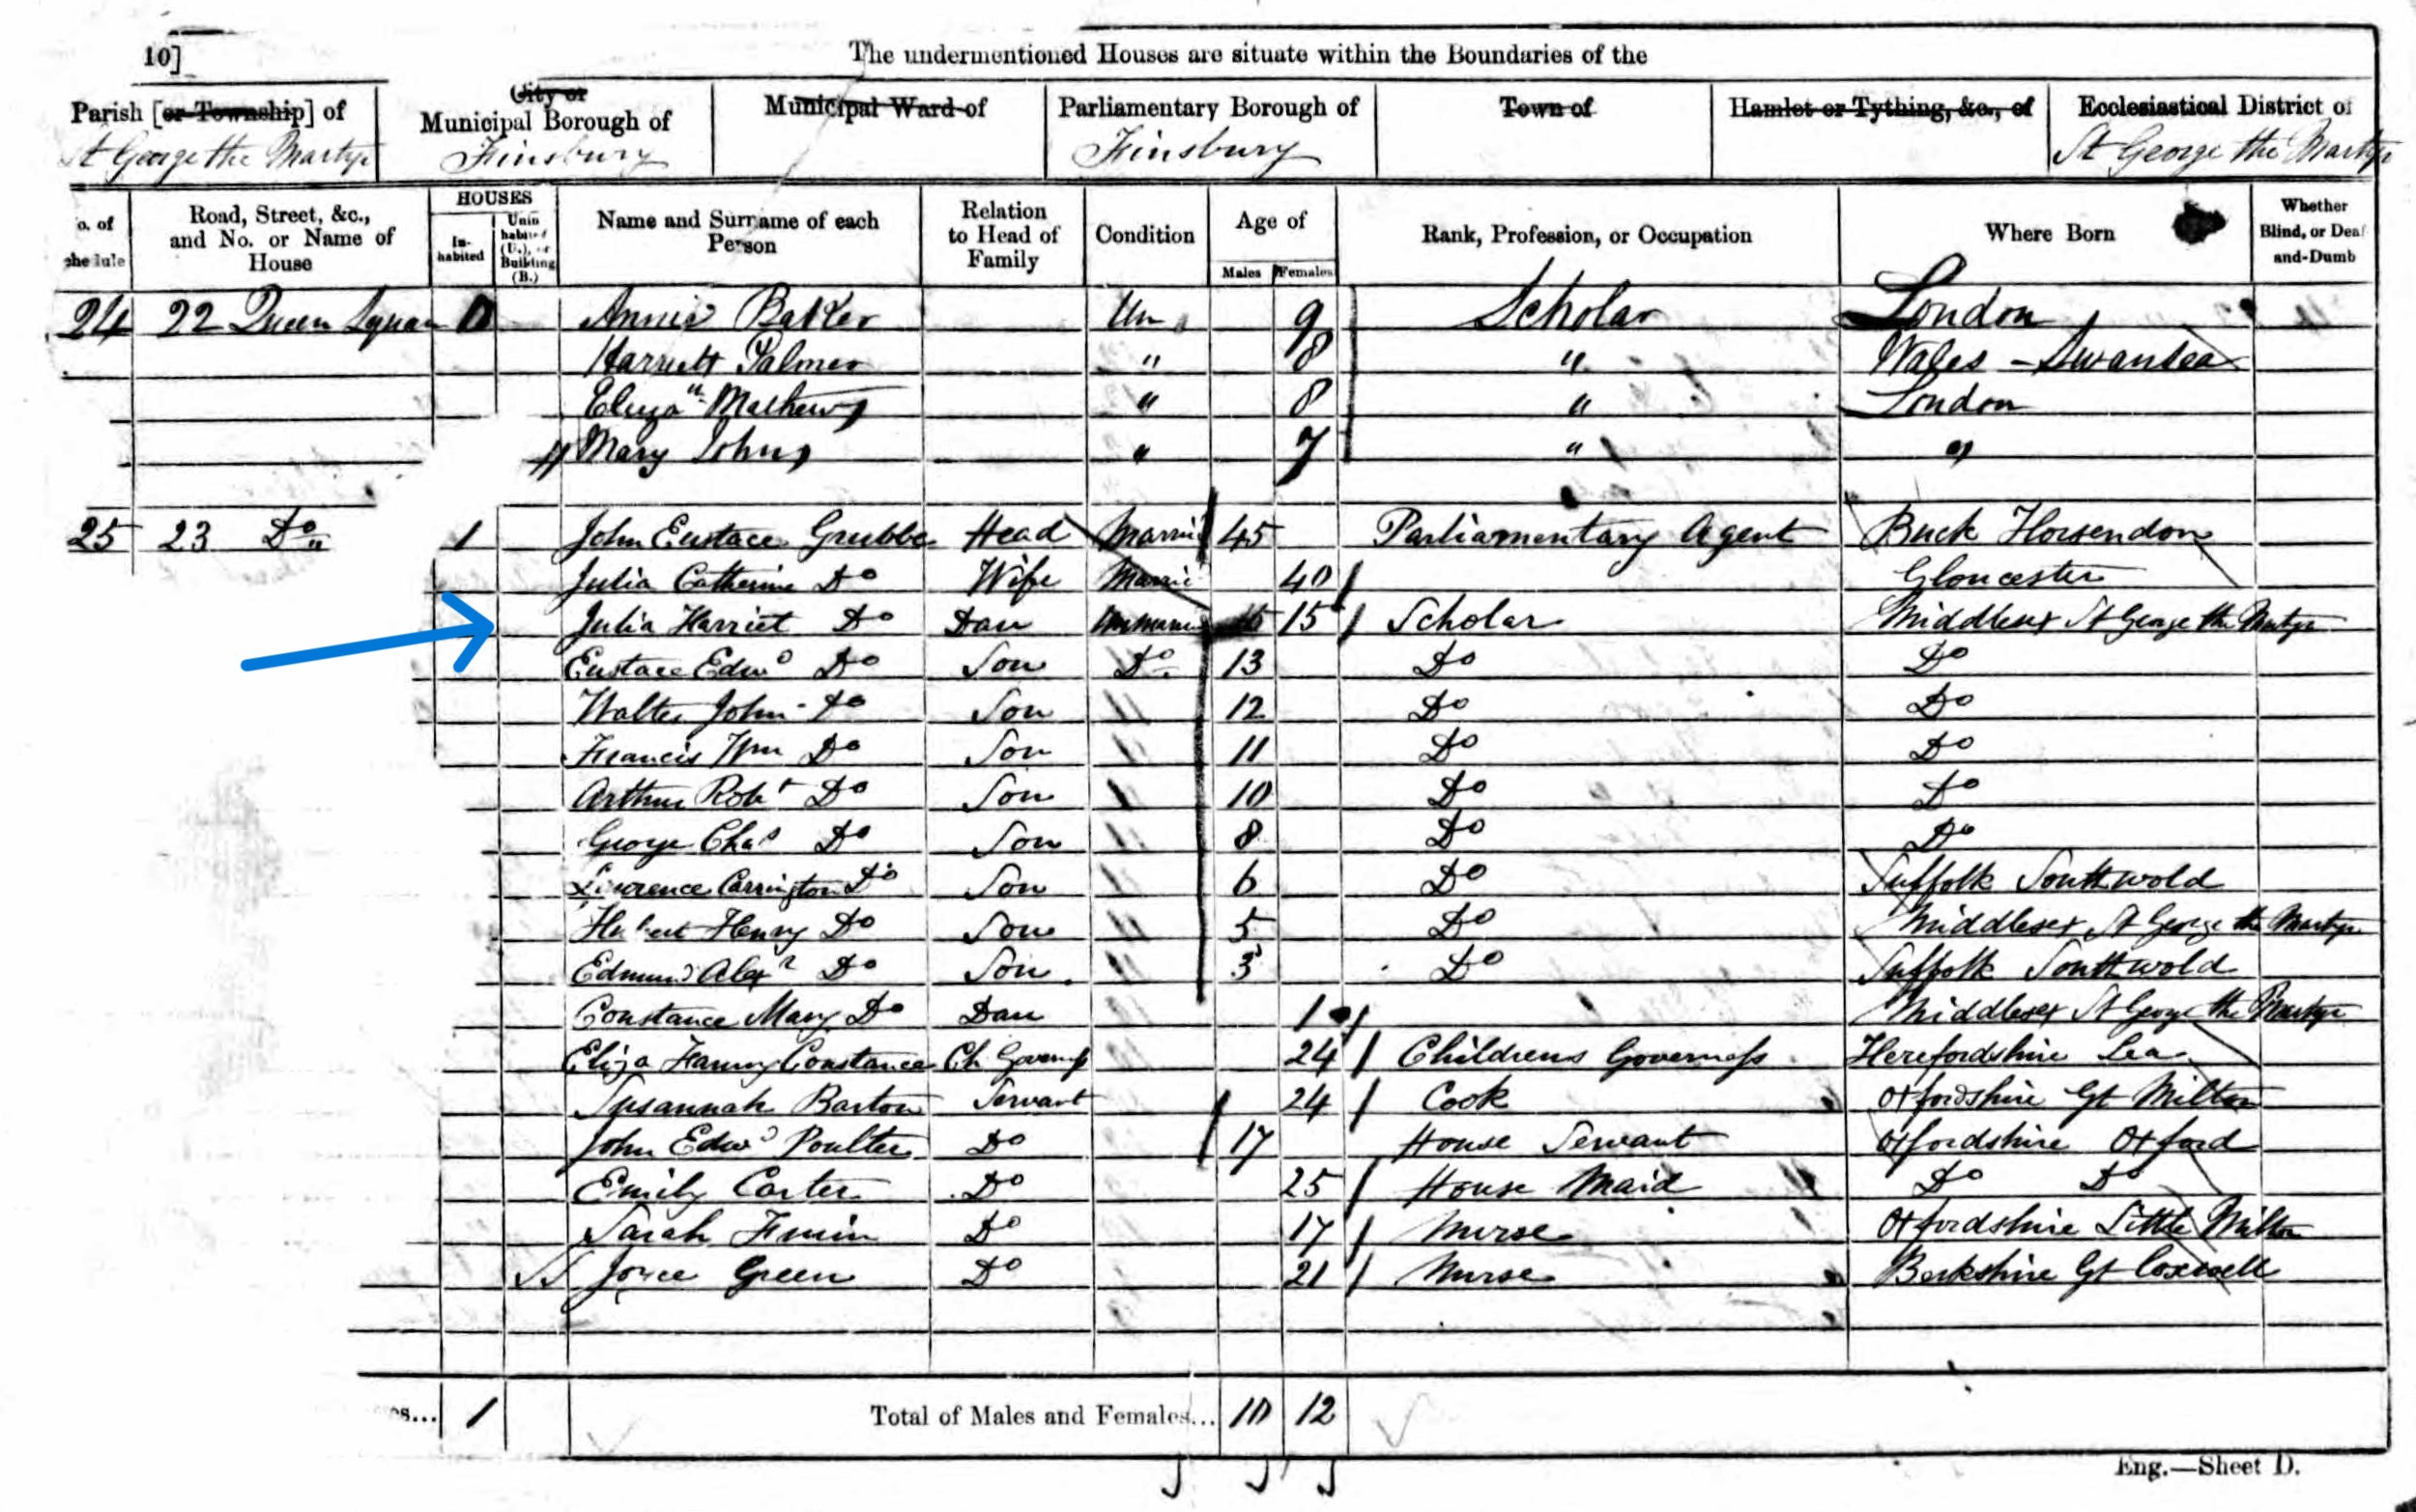 10]
The undermentioned Houses are situate within the Boundaries of the
Parish [or Township] of
City or Municipal Borough of
Municipal Ward of
Parliamentary Borough of
Town of
Hamlet or Tything, &c., of
Ecclesiastical District of
St George the Martyr
Finsbury
Finsbury
St George the Martyr
o. of Schedule
Road, Street, &c., and No. or Name of House
HOUSES
In-habited
Unin habited (U.), or Building (B.)
Name and Surname of each Person
Relation to Head of Family
Condition
Age of
Males
Females
Rank, Profession, or Occupation
Where Born
Whether Blind, or Deaf-and-Dumb
24 22 Queen Square Annie Baker Un 9 Scholar London
Harriett Palmer " 8 " Wales - Swansea
Eliza Mathews " 8 " London
// Mary Johns " 7 " "
25 23 Do 1 John Eustace Grubbe Head Married 45 Parliamentary Agent Buck Horsendon
Julia Catherine Do Wife Married 40 Gloucester
Julia Harriet Do Dau 15 Scholar Middlesex St George the Martyr
Eustace Edwd Do Son Do 13 Do Do
Walter John Do Son " 12 Do Do
Francis Wm Do Son " 11 Do Do
Arthur Robt Do Son " 10 Do Do
George Chas Do Son " 8 Do Do
Lawrence Carrington Do Son " 6 Do Suffolk Southwold
Herbert Henry Do Son " 5 Do Middlesex St George the Martyr
Edmund Alexr Do Son " 3 Do Suffolk Southwold
Constance Mary Do Dau 1 Middlesex St George the Martyr
Eliza Fanny Constance Ch Governess 24 Childrens Governess Herefordshire Lea
Susannah Barton Servant 24 Cook Oxfordshire Gt Milton
John Edwd Poulter Do 17 House Servant Oxfordshire Oxford
Emily Carter Do 25 House Maid Do Do
Sarah Do 17 Nurse Oxfordshire Little Milton
Joyce Green Do 21 Nurse Berkshire Gt Coxwell
es... 1 Total of Males and Females... 10 12
Eng.—Sheet D.